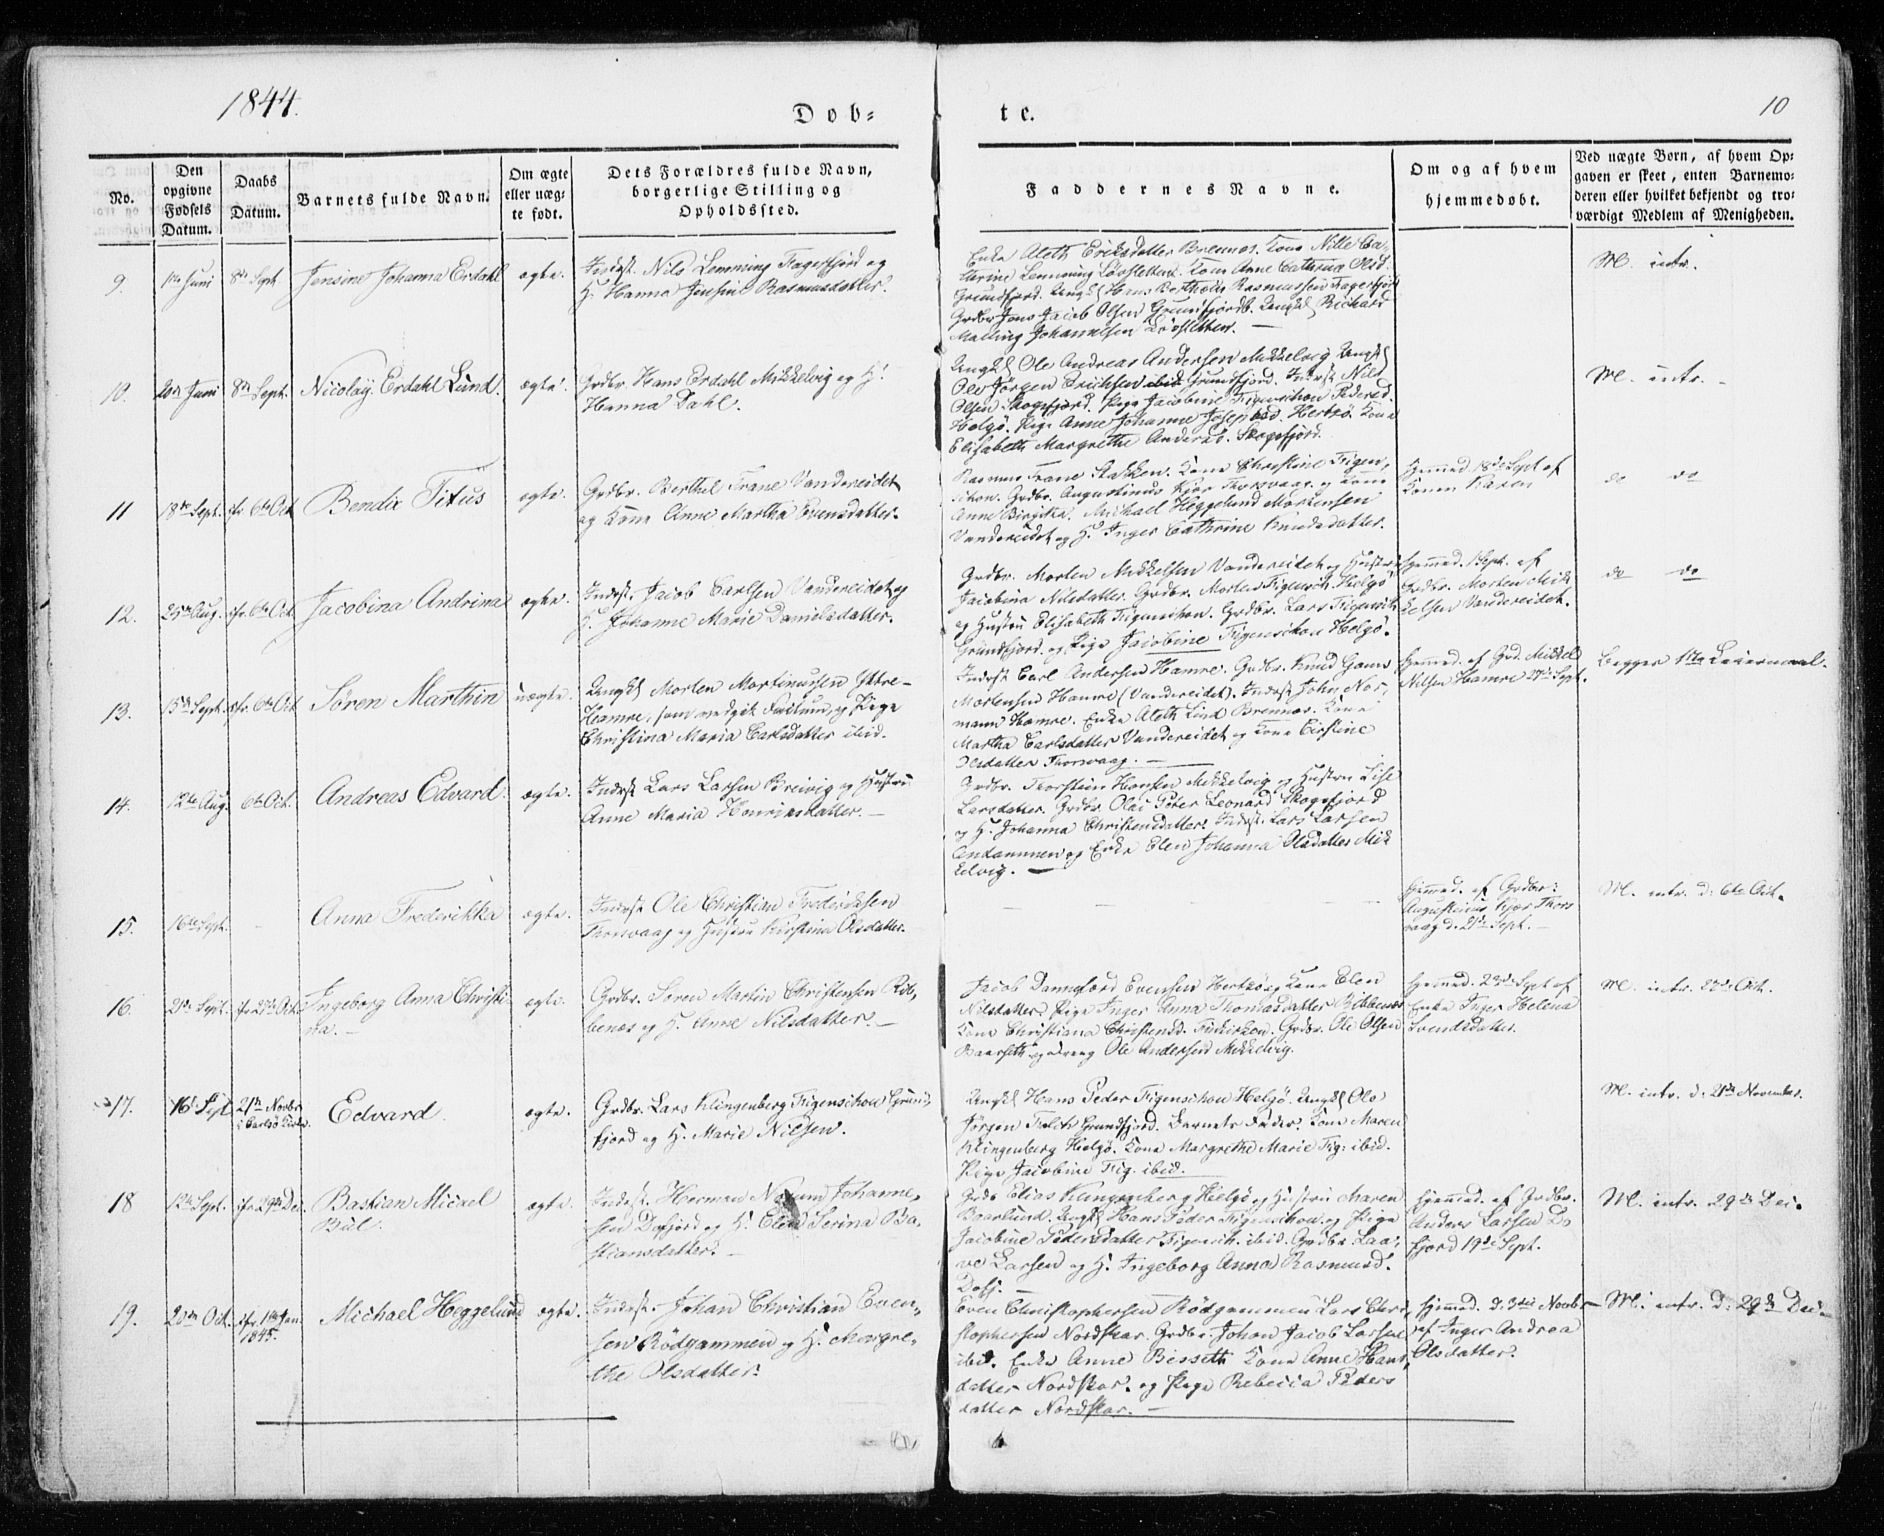 1844.
Døb-
te.
10
No.
Den opgivne Fødsels Datum.
Daabs Datum.
Barnets fulde Navn.
Om ægte eller uægte født.
Dets Forældres fulde Navn, borgerlige Stilling og Opholdssted.
Faddernes Navne.
Om og af hvem hjemmedøbt.
Ved uægte Børn, af hvem Opgaven er skeet, enten Barnemoderen eller hvilket bekjendt og troværdigt Medlem af Menigheden.
9.
Juni
8de Sept.
Jensine Johanna Erdahl
ægte.
Inderst. Nils Lemming Fagerfjord og
H. Hanna Jensine Rasmusdatter.
Enke Aleth Eriksdatter Brennes. Kone Nille Ca-
thrine Lemming Løvsletten. Kone Anne Cathrine Olsd.
Grundfjord. Ungkl. Hans Berthold Rasmussen Fagerfjord
Grdbr. Jens Jacob Olsen Grundfjord. Ungkl. Richard
Malling Johannesen Løvsletten.
M. intr.
10.
20de Juni
8de Sept.
Nicolay Erdahl Lund.
ægte.
Grdbr. Hans Erdahl Mikkelvig og H.
Hanna Dahl.
Ungkl. Ole Andreas Andersen Mikkelvig Ungkl.
Ole Jørgen Erichsen ibid Grundfjord. Inderst. Nils
Olsen Skogsfjord. Pige Jacobine Figenschou Pedersd.
Helgø. Pige Anne Johanne Josephsd. Hertzø. Kone
Elisabeth Margrethe Andersd. Skogsfjord.
M. intr.
11
18de Sept.
ifr. 6te Oct.
Bendix Titus
ægte.
Grdbr. Berthel Frane Vandereidet
og Kone Anne Martha Evensdatter.
Rasmus Frane Stakken. Kone Christine Figen-
schou. Grdbr. Augustinus Kjær Thorsvaag og Kone
Anne Birgitha. Michael Heggelund Mortensen
Vandereidet og H. Inger Cathrine Knudsdatter.
Hjemmed. 18de Sept. af
Konen Karen
do do
12.
25de Aug.
ifr. 6te Oct.
Jacobina Andrina
ægte.
Inderst. Jacob Carlsen Vandereidet og
H. Johanne Marie Danielsdatter.
Grdbr. Morten Mikkelsen Vandereidet og Hustru
Jacobina Nilsdatter. Grdbr. Morten Figensch. Helgø
og Hustru Elisabeth Figenschou. Grdbr. Lars Figensch.
Grundfjord og Pige Jacobine Figenschou Helgø.
Hjemmed. 1 Sept. af
Grdbr. Morten Mik
kelsen Vandereidet.
do do
13.
15de Sept.
ifr. 6te Oct.
Søren Marthin
uægte.
Ungkl. Morten Martinussen Yttre-
Hamre, som og Pige
Christina Maria Carlsdatter ibid.
Inderst. Carl Andersen Hamre. Grdbr. Knud Hans
Mortensen Hamre (Vandereidet). Inderst. John Nor-
mann Hamre. Enke Aleth Lind Brennes. Kone
Martha Carlsdatter Vandereidet og Kone Cirstine
Olsdatter Thorsvaag.
Hjemmed. af Grd. Mikkel
Nilsen Hamre 27de Sept.
Begges 1ste Leiermaal.
14.
12te Aug.
6te Oct.
Andreas Edvard.
ægte.
Inderst Lars Larsen Breivig og Hustru
Anne Maria Henriksdatter.
Grdbr. Thorstein Hansen Mikkelvig og Hustru Lise
Larsdatter. Grdbr. Olai Peter Leonard Skogsfjord
og H. Johanna Christensdatter. Inderst. Lars Larsen
og Enke Elen Johanna Olsdatter Mik
kelvig.
15.
16te Sept.
Anna Frederikka
ægte.
Inderst Ole Christian
Thorsvaag og Hustru Kirstina Olsdatter.
Hjemmed. af Grdbr.
Augustinus Kjær Thors
vaag d. 21de Sept.
M. intr. d. 6te Oct.
16.
21de Sept.
ifr 27de Oct.
Ingeborg Anna Christi-
na.
ægte.
Grdbr. Søren Martin Christensen Rib-
benæs og H. Anne Nilsdatter.
Jacob Evensen Hertzø og Kone Elen
Nilsdatter. Pige Inger Anna Thomasdatter Ribbenæs
Kone Christiana Christensd. Grdbr. Ole Olsen
og Ole Andersen Mikkelvig.
Hjemmed. 22de Sept af
Enke Inger Helena
Svendsdatter.
M. intr. 27de Oct.
17.
16de Sept
21de Novbr
i Carlsø Kirke.
Edvard
ægte.
Grdbr. Lars Klingenberg Figenschou Grund-
fjord og H. Marie Nilsen.
Ungkl. Hans Peder Figenschou Helgø. Ungkl. Ole
Jørgen Grundfjord. Barnets Fader. Kone Maren
Klingenberg Helgø. Kone Margrethe Marie Fig. ibid.
Pige Jacobine Fig. ibid.
M. intr. d. 21de November.
18
12te Sept.
ifr 29de Dec.
Bastian Micael
Bul.
ægte.
Inderst. Herman Norum Johanne-
sen Dofjord og H. Elen Serina Ba-
stiansdatter.
Grdb Elias Klingenberg Helgø og Hustru Maren
Baarlund. Ungkl. Hans Peder Figenschou og Pige
Jacobine Pedersdatter Figensch. ibid. Grdbr. Laa-
ve Larsen og H. Ingeborg Anna Rasmusd.
Dofj.
Hjemmed. af Grdbr.
Anders Larsen Do
fjord 19de Sept.
M. intr. 29de Dec.
19.
20de Oct.
ifr. 1ste Jan.
1845.
Michael Heggelund
ægte.
Inderst. Johan Christian Even-
sen Rødgammen og H. Margre-
the Olsdatter.
Even Christophersen Rødgammen Lars Chri-
stophersen Nordskar. Grdbr. Johan Jacob Larsen
ibid. Enke Anne Bisseth Kone Anne Hans-
datter Nordskar. og Pige Rebecca Peders
datter Nordskar.
Hjemmed. d. 3die Novbr
af Inger Andrea
Olsdatter.
M. intr. d. 29de Dec.